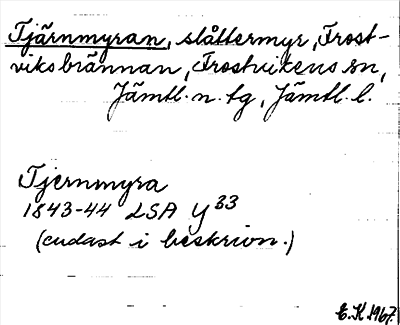 Tjärnmyran, slåttermyr, Frost-
viksbrännan, Frostvikens sn,
Jämtl. n. tg, Jämtl. l.
Tjernmyra
1843-44 LSA Y 33
(endast i beskrivn.)
E. K. 1967.